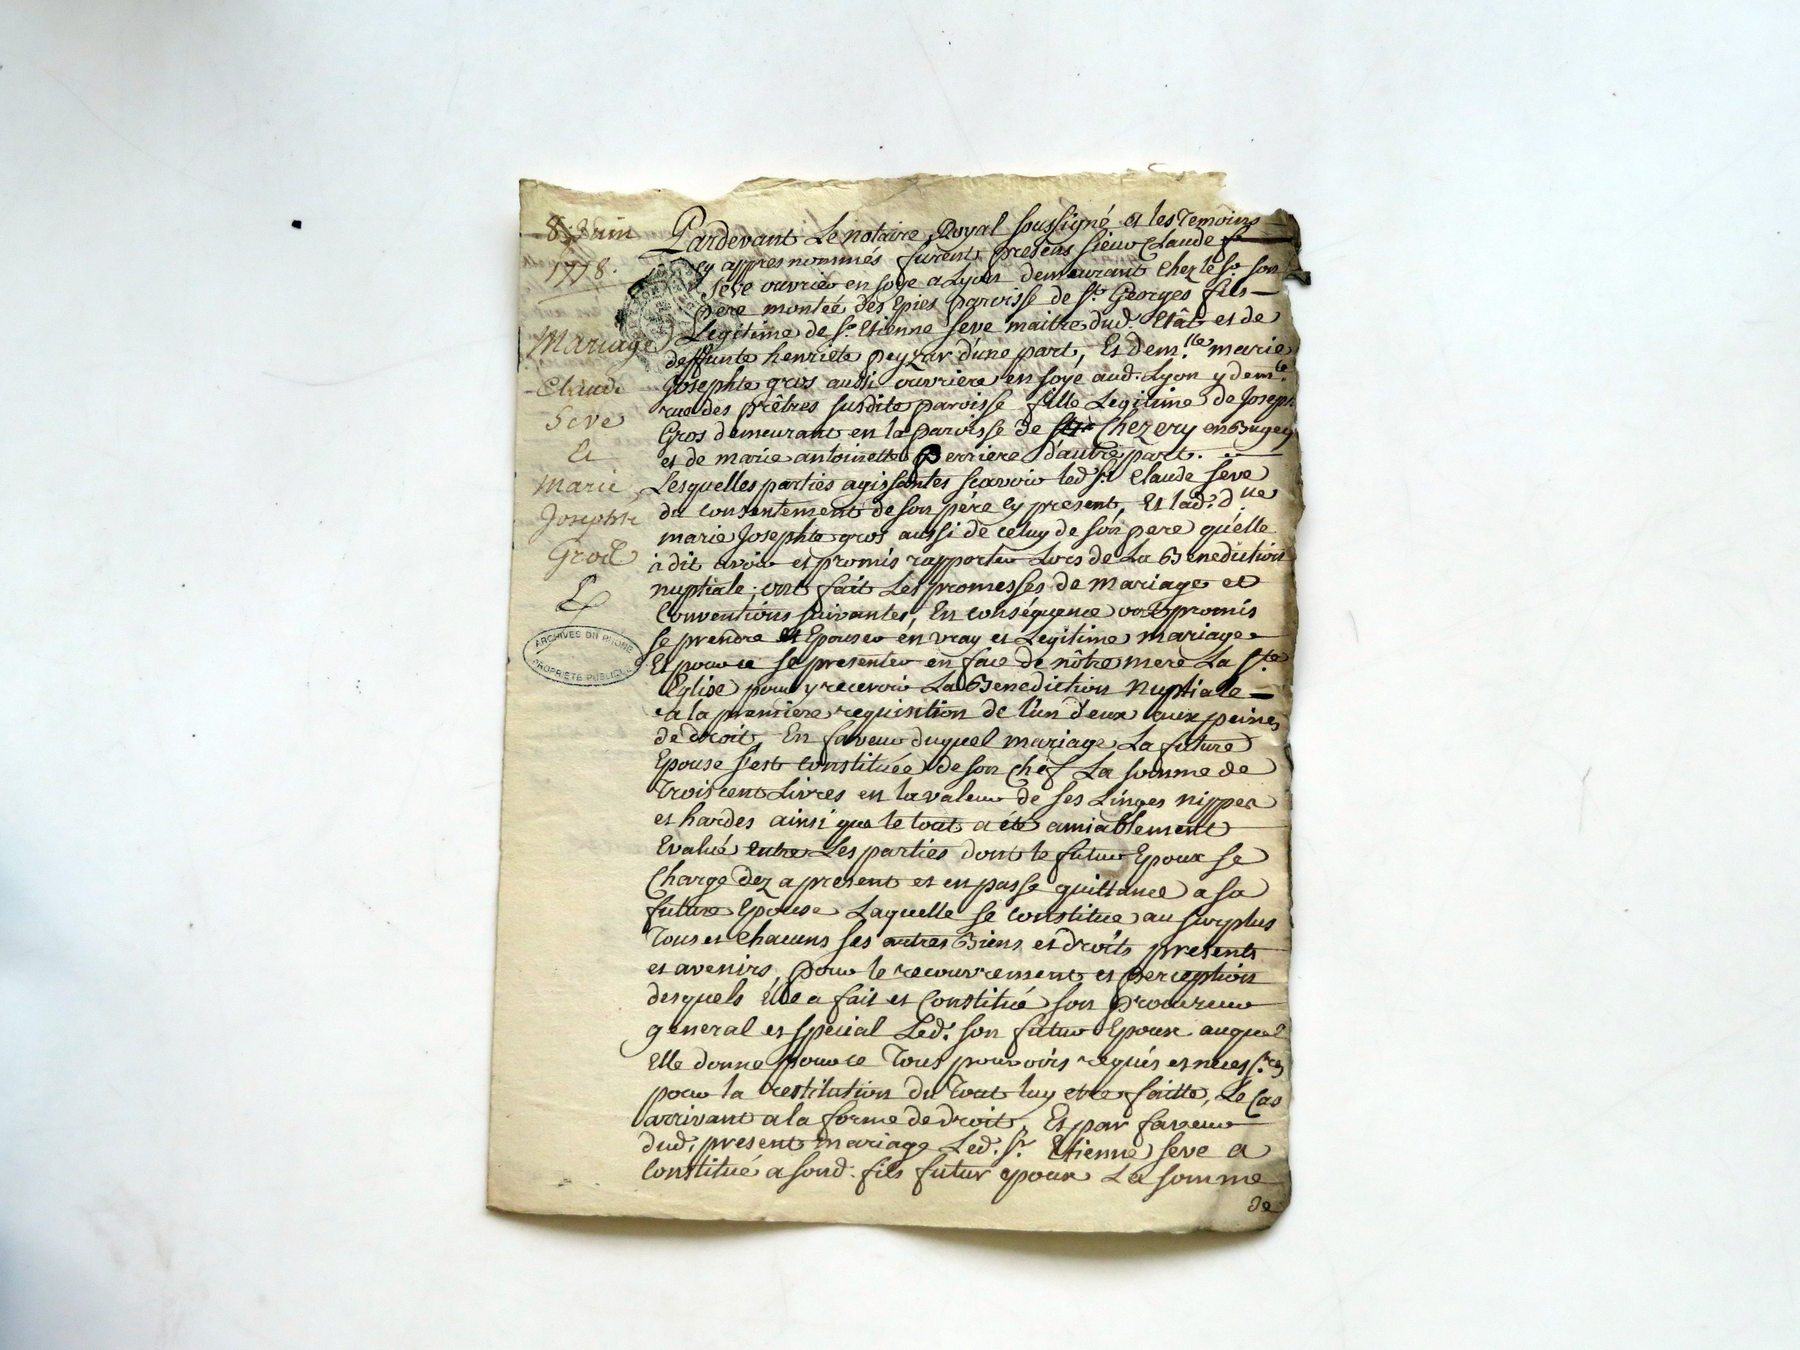 8. Juin
1778.
Mariage
Claude
Seve
et
Marie
Josephte
Gros
ARCHIVES DU RHONE
PROPRIETE PUBLIQUE
Pardevant Le notaire Royal soussigné et les Temoins
cy appres nommés furent presens sieur Claude
Seve ouvrier en soye a Lyon demeurant chez le Sr. son
pere montée des Epies parroisse de St. Georges fils
Legitime de Sr. Etienne Seve maitre dud. Etât et de
deffunte henriete peyzar d'une part, Et demlle. marie
Josephte gros aussi ouvriere en soye aud. Lyon y demte.
rue des prêtres susdite paroisse fille Legitime de Joseph
Gros demeurant en la paroisse de Chezery en Bugey
et de marie antoinette Perriere d'autre part.
Lesquelles parties agissantes scavoir led. Sr. Claude Seve
du consentement de son père cy present, Et lad. dlle
marie Josephte gros aussi de celuy de son pere qu'elle
à dit avoir et promis rapporter Lors de La Benediction
nuptiale; ont fait Les promesses de mariage et
Conventions suivantes, En conséquence ont promis
se prendre et Epouser en vray et Legitime mariage
Et pour ce se presenter en face de nôtre mere La Ste.
Eglise pour y recevoir La Benediction Nuptiale
a la premiere requisition de l'un d'eux aux peines
de droit, En faveur duquel mariage La future
Epouse s'est constituée de son Chef La somme de
Trois cent Livres en la valeur de ses Linges nippes
et hardes ainsi que le tout a été amiablement
Evalué entre Les parties dont le futur Epoux se
Charge dez a present et en passe quittance a sa
future Epouse Laquelle se constitue au surplus
Tous et Chacuns ses autres Biens et droits presents
et avenirs, pour le recouvrement et perception
desquels Elle a fait et Constitué son Procureur
general et special Led. son futur Epoux auquel
Elle donne pour ce Tous pouvoirs requis et necessres
pour la restitution du Tout luy etre faitte, Le Cas
arrivant a la forme de droit, Et par faveur
dud. present mariage Led. Sr. Etienne Seve a
Constitué a sond. fils futur epoux La somme
de